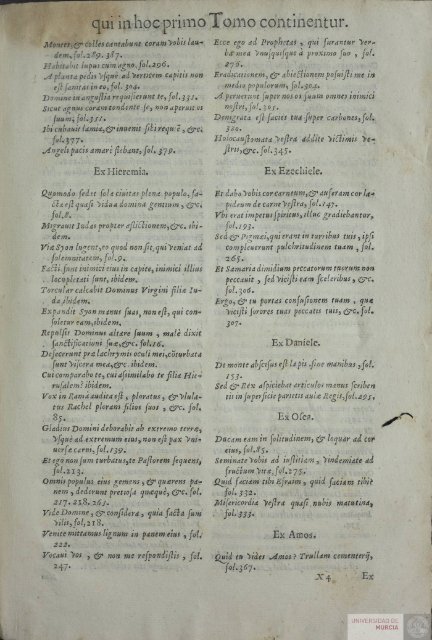 qui in hoc primo Tomo continentur.
Montes, & colles cantabunt coram vobis lau-
dem, fol. 289. 367.
Habitabit lupus cum agno. fol. 296.
A planta pedis vsque ad verticem capitis non
est sanitas in eo, fol. 304.
Domine in angustia requisierunt te, fol. 331.
Sicut agnus coram tondente se, non aperuit os
suum, fol. 351.
Ibi cubauit lamia, & inuenit sibi requiē, &c.
fol. 377.
Angeli pacis amarè flebant, fol. 379.
Ex Hieremia.
Quomodo sedet sola ciuitas plena populo, fa-
cta est quasi vidua domina gentium, &c.
fol. 8.
Migrauit Iudas propter afflictionem, &c. ibi-
dem.
Viæ Syon lugent, eo quod non sit, qui veniat ad
solemnitatem, fol. 9.
Facti sunt inimici eius in capite, inimici illius
locupletati sunt, ibidem.
Torcular calcabit Dominus Virgini filiæ Iu-
da, ibidem.
Expandit Syon manus suas, non est, qui con-
soletur eam, ibidem.
Repulsit Dominus altare suum, maledixit
sanctificationi suæ, &c. fol. 16.
Defecerunt præ lachrymis oculi mei, cōturbata
sunt viscera mea, &c. ibidem.
Cui comparabo te, cui assimilabo te filia Hie-
rusalem? ibidem.
Vox in Rama audita est, ploratus, & vlula-
tus Rachel plorans filios suos, &c. fol.
85.
Gladius Domini deuorabit ab extremo terræ,
vsque ad extremum eius, non est pax vni-
uersæ carni, fol. 139.
Et ego non sum turbatus, te Pastorem sequens,
fol. 213.
Omnis populus eius gemens, & quærens pa-
nem, dederunt pretiosa quæquè, &c. fol.
217. 218. 263.
Vide Domine, & considera, quia facta sum
vilis, fol. 218.
Venite mittamus lignum in panem eius, fol.
222.
Vocaui vos, & non me respondistis, fol.
247.
Ecce ego ad Prophetas, qui furantur ver-
ba mea vnusquisque à proximo suo, fol.
276.
Eradicationem, & abiectionem posuisti me in
medio populorum, fol. 304.
Aperuerunt super nos os suum omnes inimici
nostri, fol. 305.
Denigrata est facies tua super carbones, fol.
304.
Holocaustomata vestra addite victimis ve-
stris, &c. fol. 345.
Ex Ezechiele.
Et dabo vobis cor carneum, & auferam cor la-
pideum de carne vestra, fol. 147.
Vbi erat impetus spiritus, illuc gradiebantur,
fol. 193.
Sed & Pigmæi, qui erant in turribus tuis, ipsi
compleuerunt pulchritudinem tuam, fol.
265.
Et Samaria dimidium peccatorum tuorum non
peccauit, sed vicisti eam sceleribus, &c.
fol. 306.
Ergo, & tu portas confusionem tuam, quæ
vicisti sorores tuas peccatis tuis, &c. fol.
307.
Ex Daniele.
De monte abscisus est lapis sine manibus, fol.
153.
Sed & Rex aspiciebat articulos manus scriben
tis in superficie parietis aulæ Regiæ, fol. 295.
Ex Osea.
Ducam eam in solitudinem, & loquar ad cor
eius, fol. 85.
Seminate vobis ad iustitiam, vindemiate ad
fructum vitæ, fol. 275.
Quid faciam tibi Efraim, quid faciam tibi?
fol. 332.
Misericordia vestra quasi nubis matutina,
fol. 333.
Ex Amos.
Quid tu vides Amos? Trullam cementerij,
fol. 367.
X 4 Ex
UNIVERSIDAD DE
MURCIA